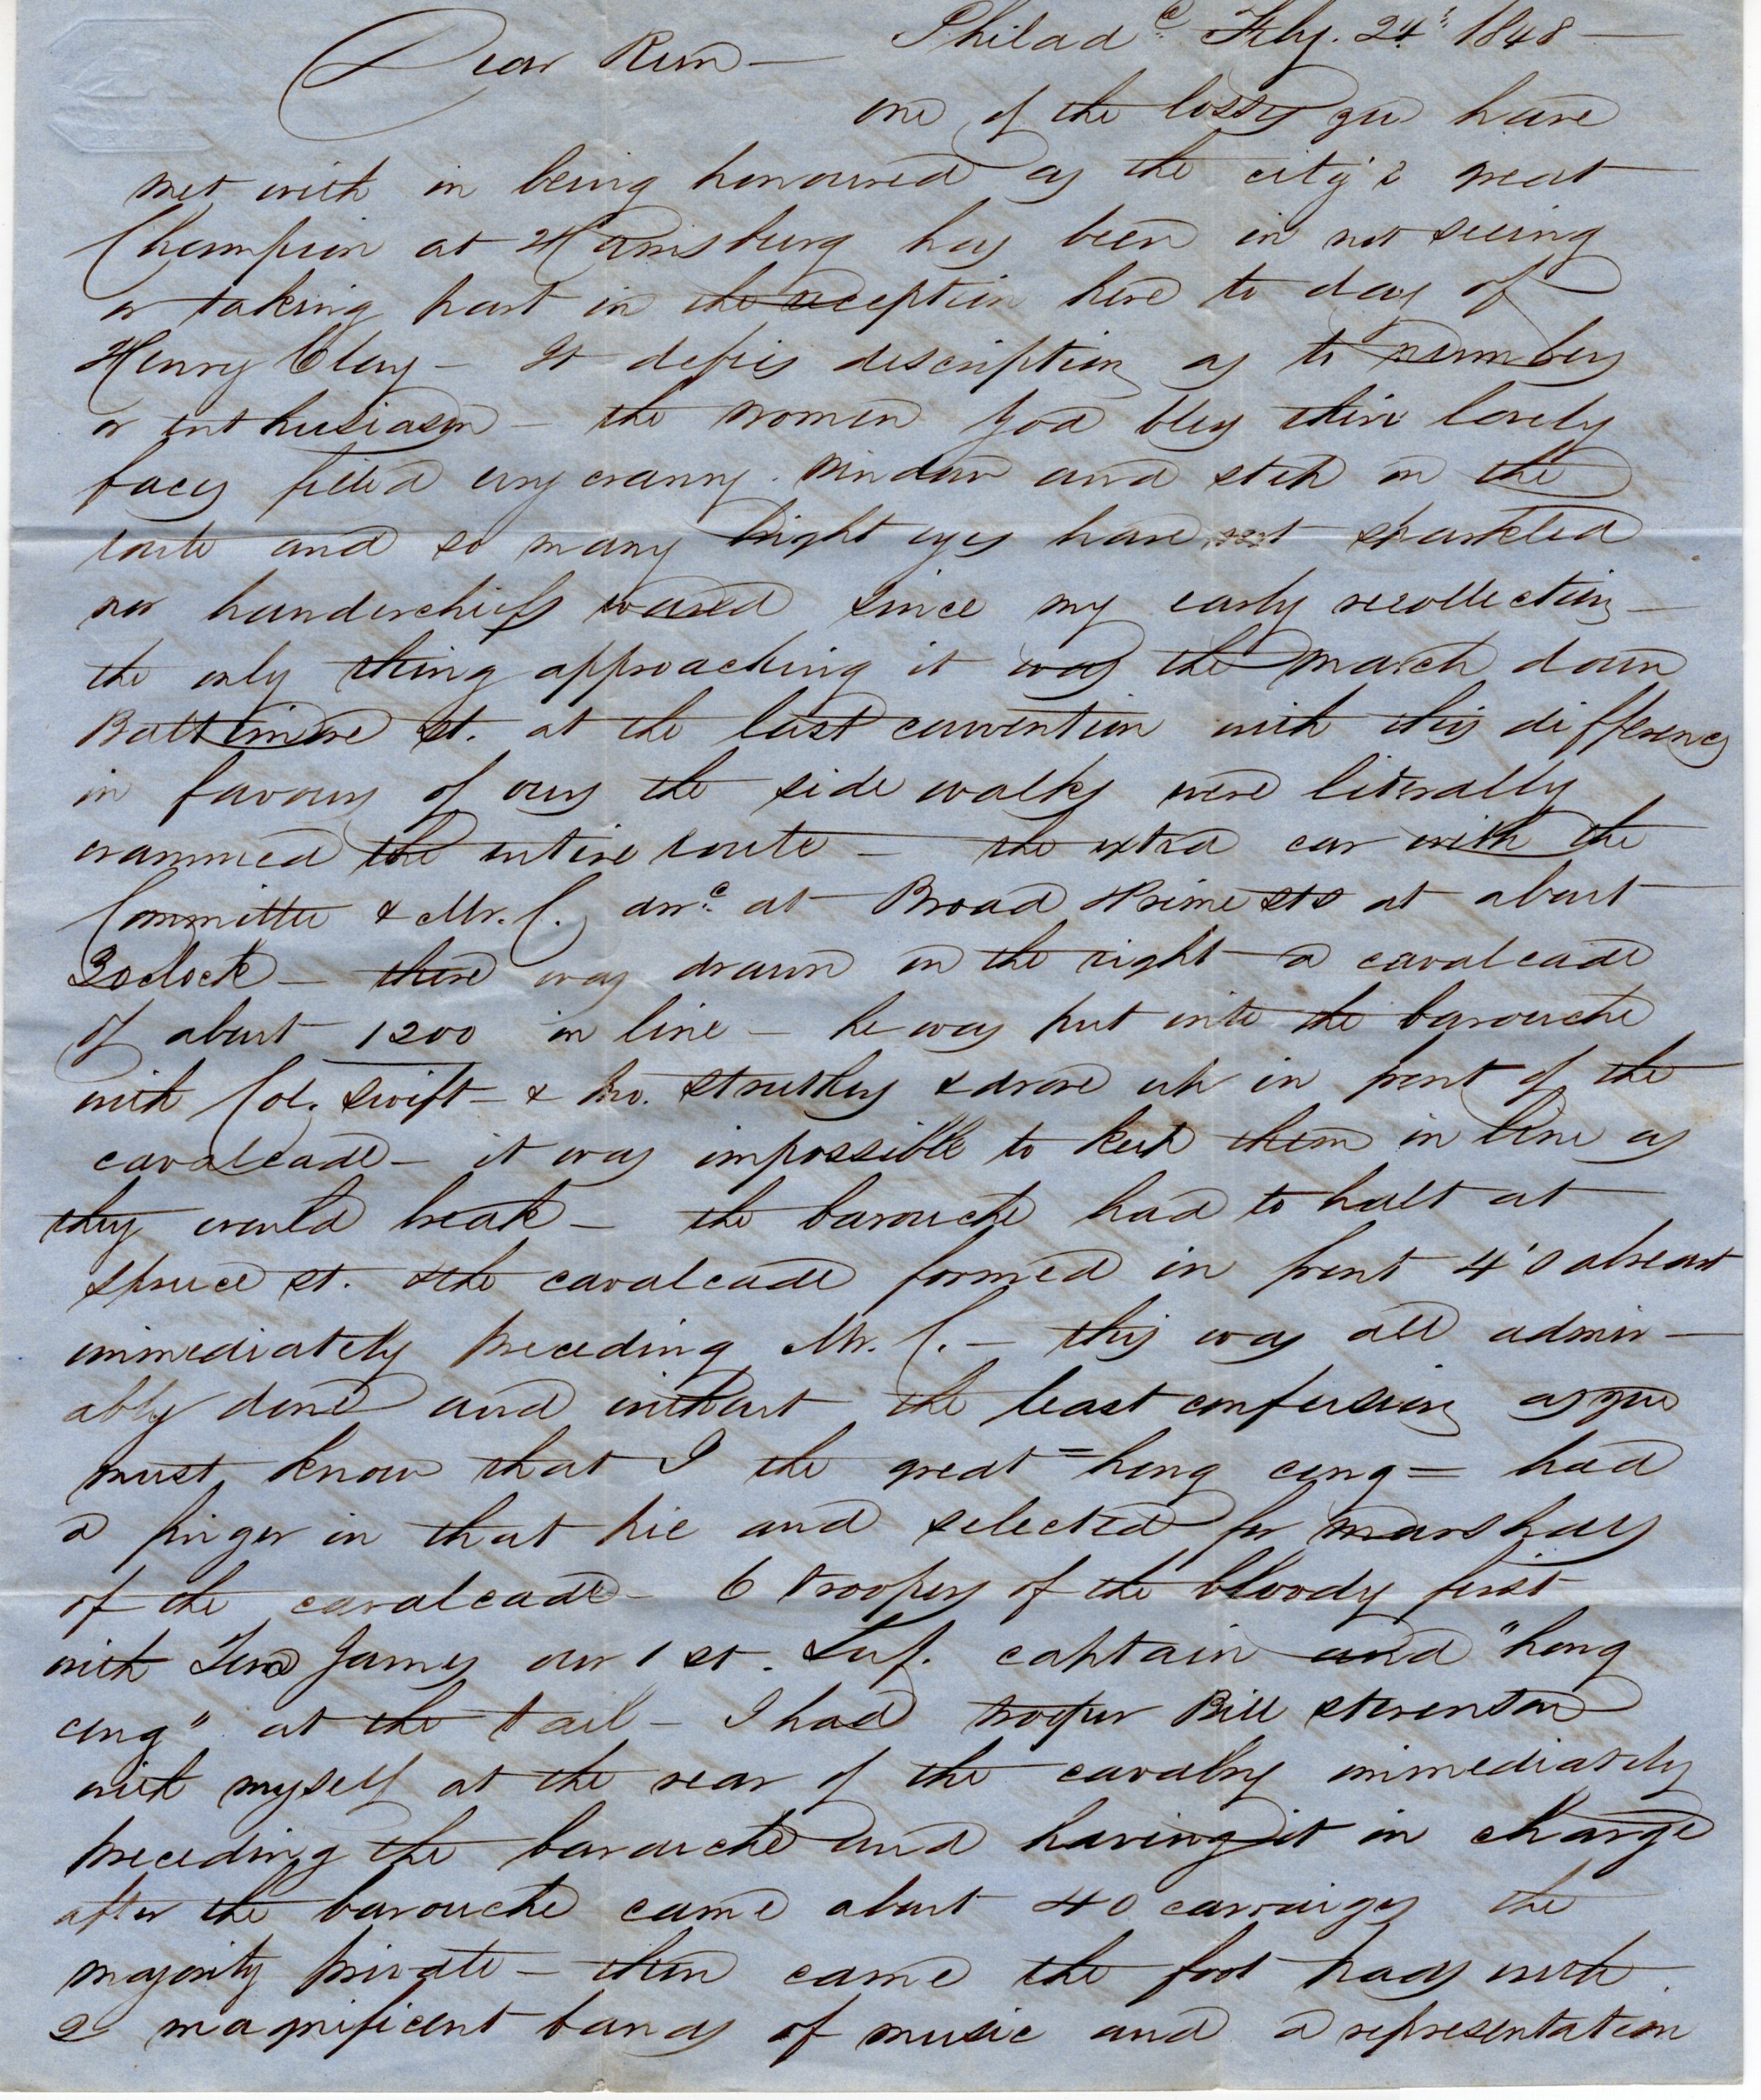 Philad^a. Feby. 24th 1848 —
Dear Rum —
one of the losses you have
met with in being honoured as the city's great
Champion at Harrisburg has been in not seeing
or taking part in the reception here to day of
Henry Clay — It defies description as to numbers
or enthusiasm — the women God bless their lovely
faces filled evry cranny. window and step on the
route and so many bright eyes have not sparkled
nor handerchiefs waved since my early recollection —
the only thing approaching it was the march down
Baltimore st. at the last convention with this difference
in favour of ours the side walks were literally
crammed the entire route — the extra car with the
Committee & Mr. C. arr^d. at Broad & Prime sts at about
3 oclock — there was drawn on the right a cavalcade
of about 1200 in line — he was put into the barouche
with Col. Swift — & Mr. Struthers & drove up in front of the
cavalcade — it was impossible to keep them in line as
they would break — the barouche had to halt at
Spruce st. & the cavalcade formed in front 4's abreast
immediately preceding Mr. C. — this was all admir —
ably done and without the least confusion as you
must know that I the great = hong cong = had
a finger in that pie and selected for marshals
of the cavalcade — 6 troopers of the bloody first
with James our 1st. captain and "hong
cong" at the tail — I had trooper Bill Stevenson
with myself at the rear of the cavalry immediately
preceding the barouche and having it in charge
after the barouche came about 40 carraiges the
majority private — then came the foot pads with
2 magnificent bands of music and a representation